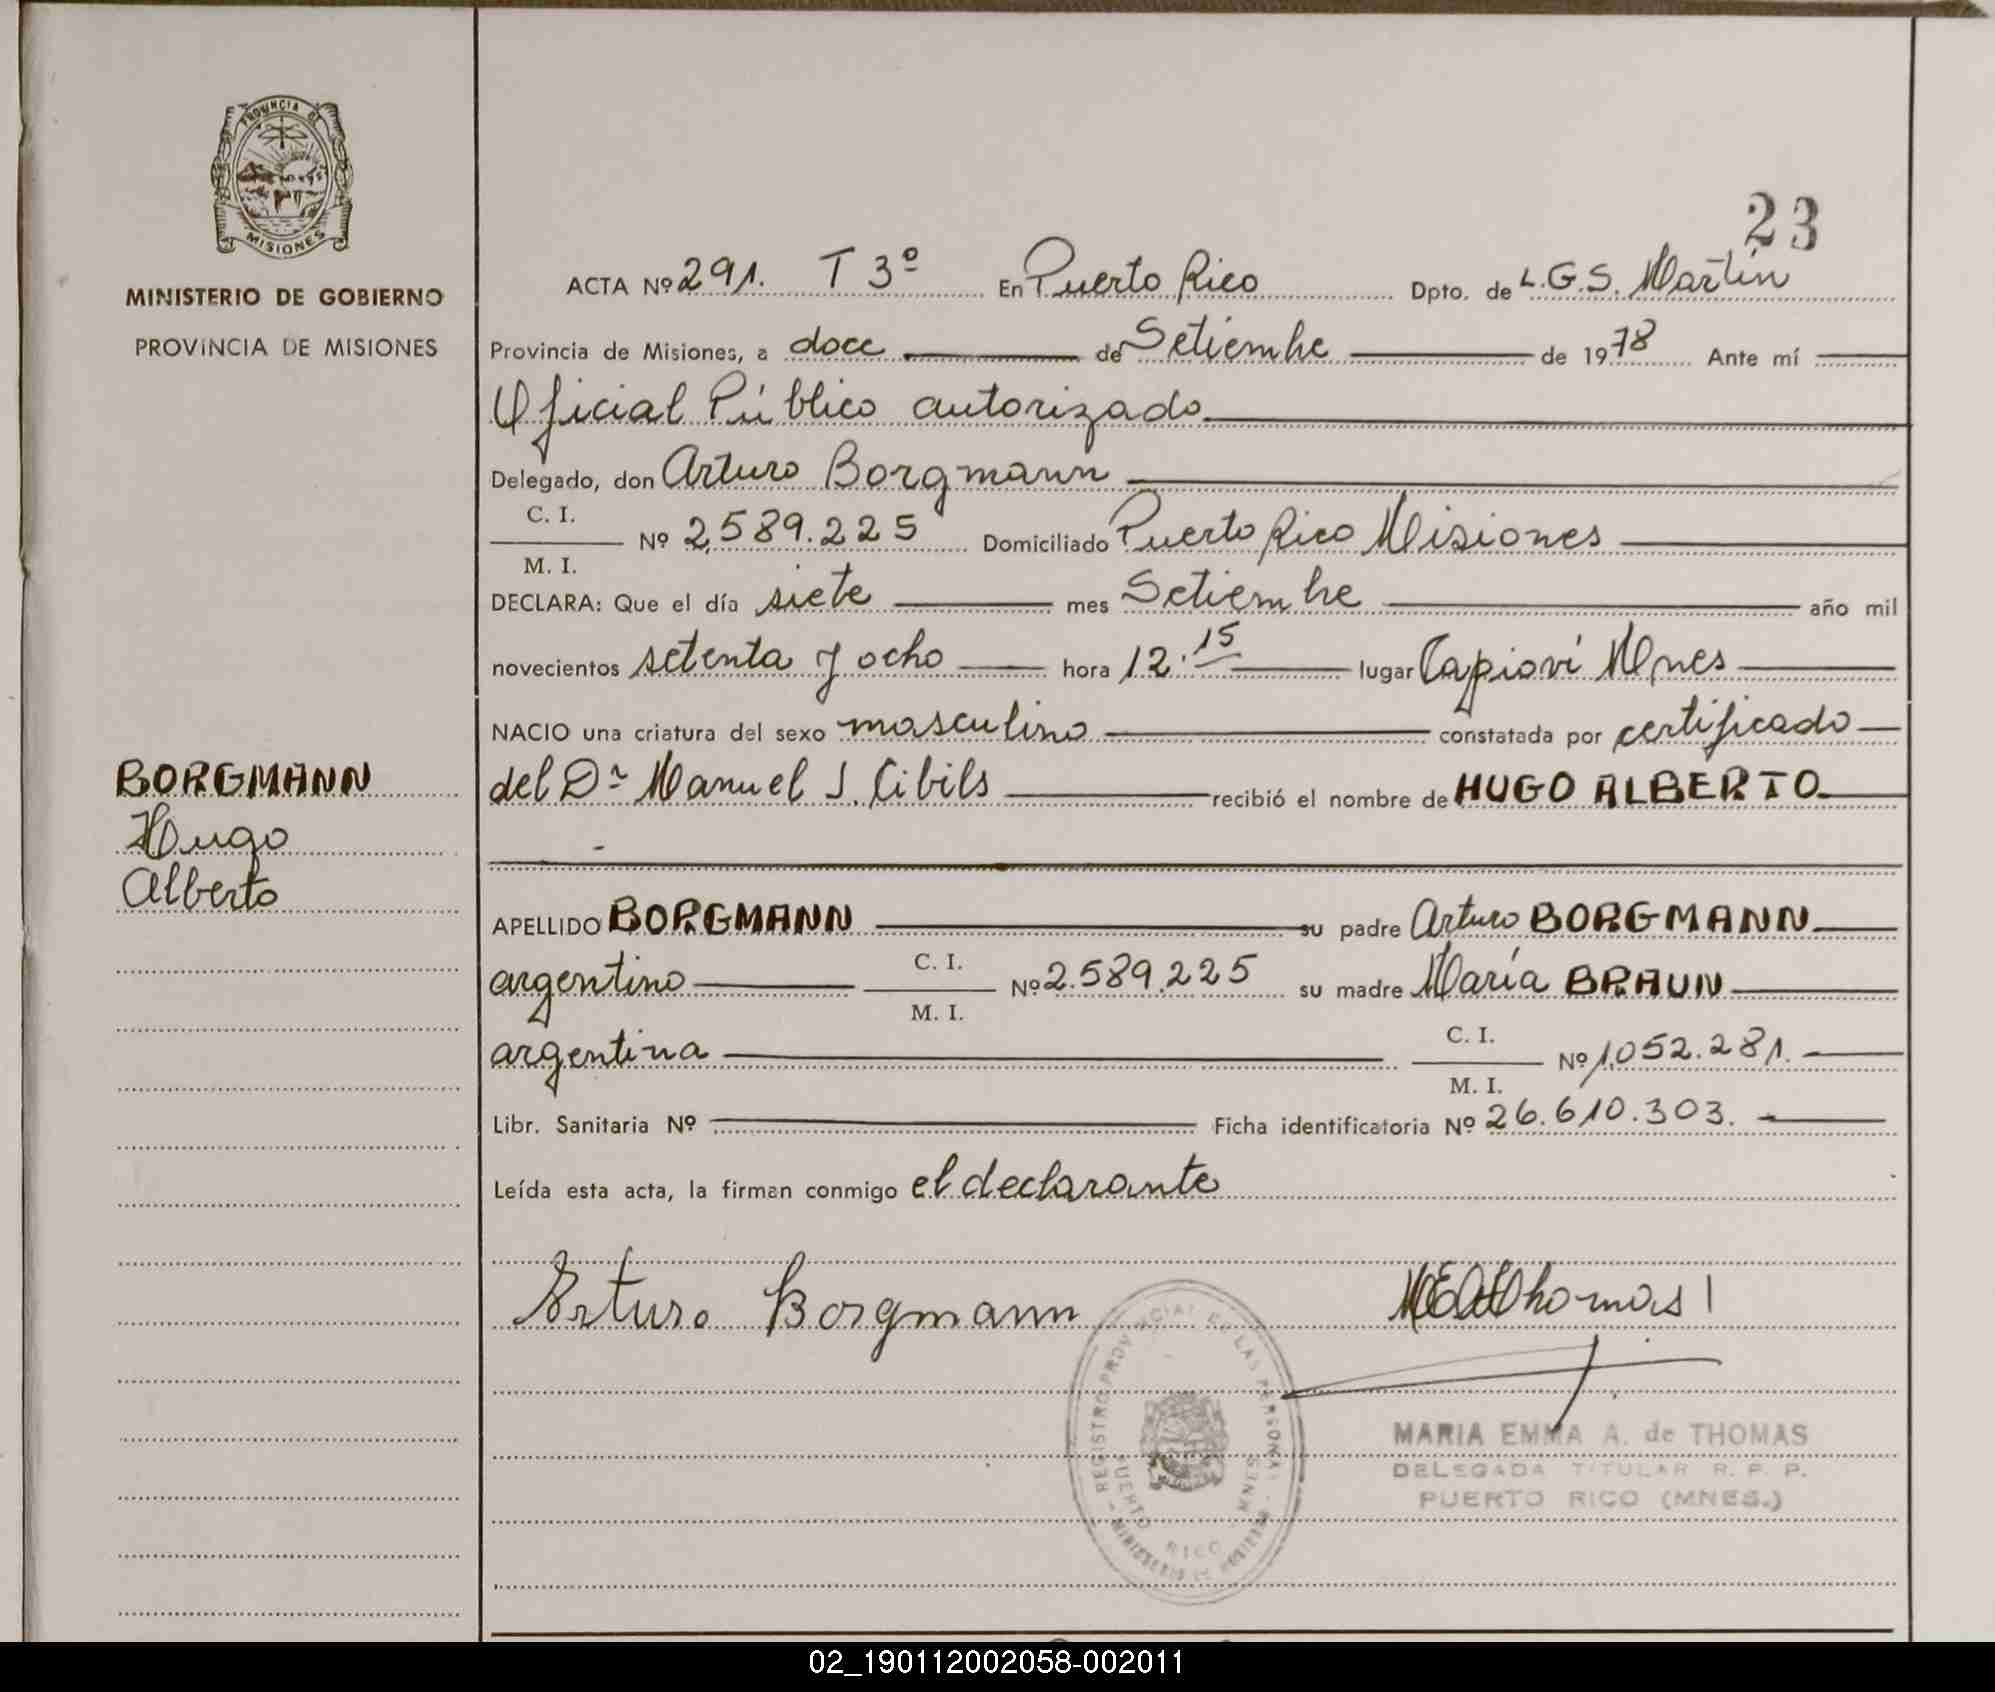 PROVINCIA DE
MISIONES
MINISTERIO DE GOBIERNO
PROVINCIA DE MISIONES
BORGMANN
Hugo
Alberto
23
ACTA Nº 291. T 3º En Puerto Rico Dpto. de L.G.S. Martín
Provincia de Misiones, a doce de Setiembre de 1978 Ante mí
Oficial Público autorizado
Delegado, don Arturo Borgmann
C. I.
Nº 2.589.225 Domiciliado Puerto Rico Misiones
M. I.
DECLARA: Que el día siete mes Setiembre año mil
novecientos setenta y ocho hora 12.15 lugar Capioví Mnes
NACIO una criatura del sexo masculino constatada por certificado
del Dr Manuel J. Cibils recibió el nombre de HUGO ALBERTO
APELLIDO BORGMANN su padre Arturo BORGMANN
argentino C. I. Nº 2.589.225 su madre María BRAUN
M. I.
argentina C. I. Nº 1.052.281.
M. I.
Libr. Sanitaria Nº Ficha identificatoria Nº 26.610.303.
Leída esta acta, la firman conmigo el declarante
Arturo Borgmann MEAdThomas
REGISTRO PROVINCIAL DE LAS PERSONAS
PUERTO RICO MNES
MINISTERIO DE GOBIERNO
MARIA EMMA A. de THOMAS
DELEGADA TITULAR R. P. P.
PUERTO RICO (MNES.)
02_190112002058-002011